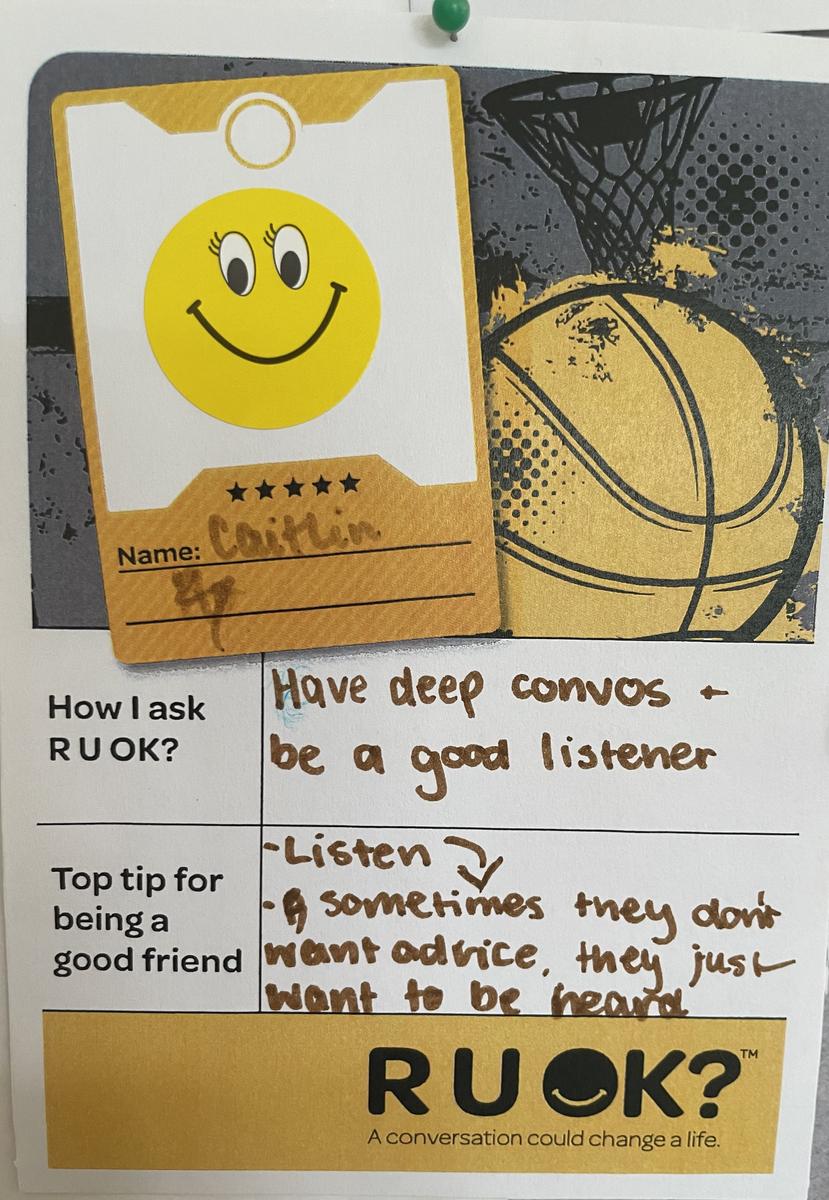 Name: Caitlin
How I ask
R U OK?
Have deep convos +
be a good listener
Top tip for
being a
good friend
-Listen
- sometimes they don't
want advice, they just
want to be heard
R U OK?™
A conversation could change a life.